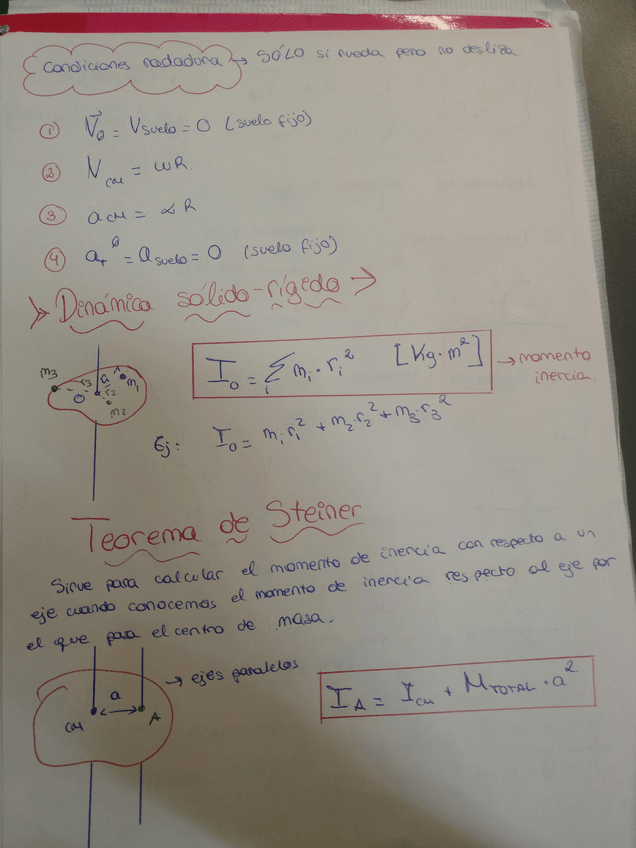 Condiciones rodadura → SÓLO si rueda pero no desliza
① V⃗_B = V_suelo = 0 (suelo fijo)
② V_CM = ωR.
③ a_CM = αR
④ a_T^B = a_suelo = 0 (suelo fijo)
Dinámica sólido-rígido →
m3 r3 r1 m1
O r2
m2
I_o = Σ_i m_i · r_i² [Kg·m²] → momento inercia.
Ej: I_o = m_1 r_1² + m_2·r_2² + m_3·r_3²
Teorema de Steiner
Sirve para calcular el momento de inercia con respecto a un
eje cuando conocemos el momento de inercia respecto al eje por
el que pasa el centro de masa.
→ ejes paralelos
a
CM A
I_A = I_CM + M_TOTAL · a²